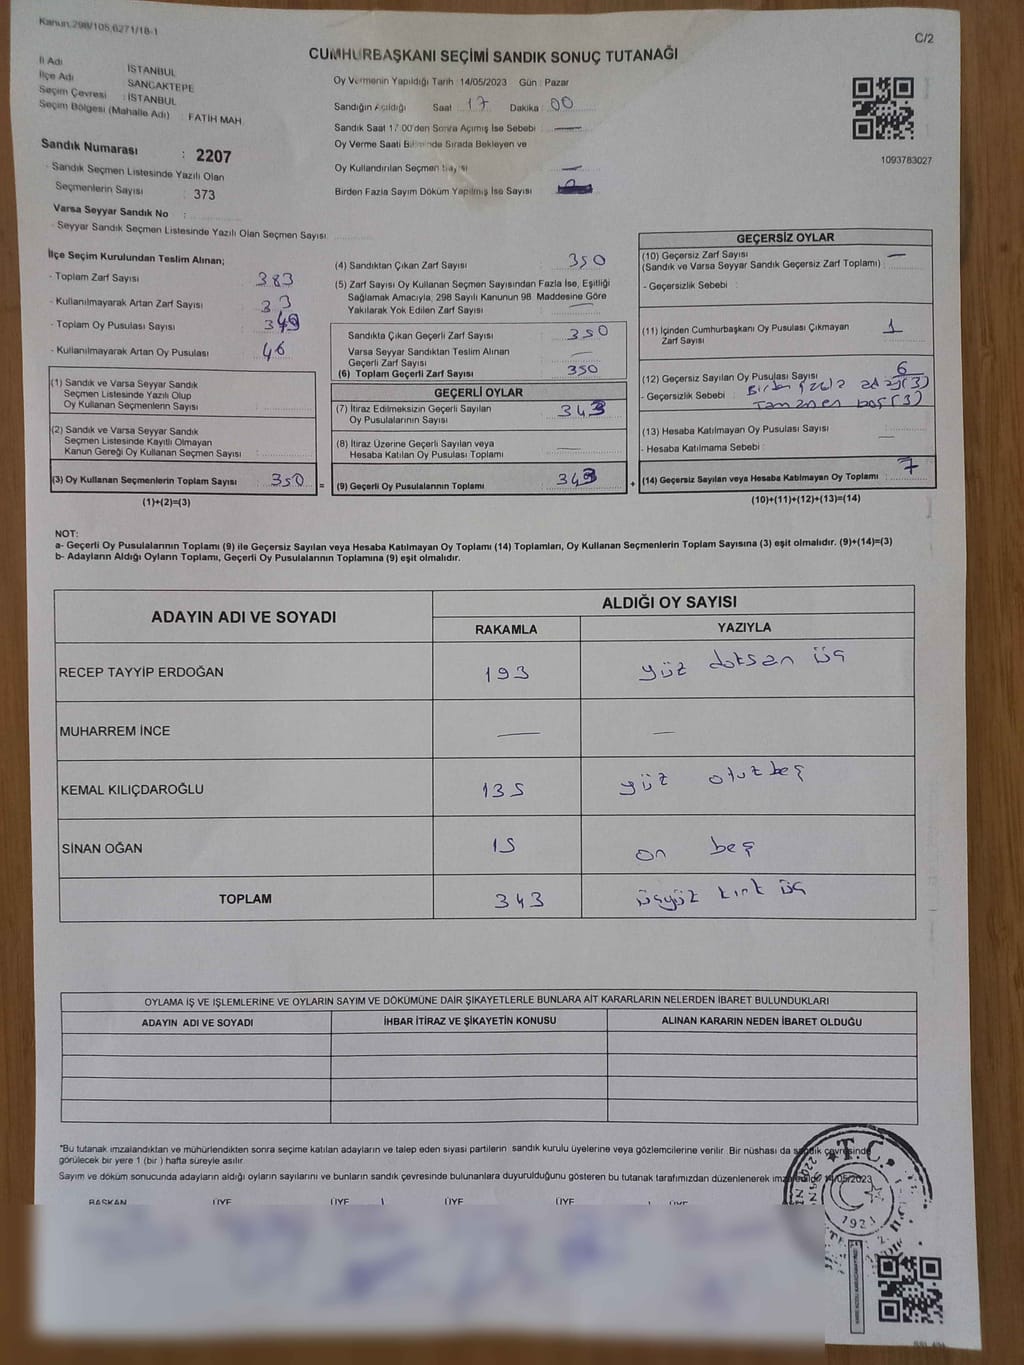 Kanun,298/105,6271/18-1
C/2
CUMHURBAŞKANI SEÇİMİ SANDIK SONUÇ TUTANAĞI
İl Adı İSTANBUL
İlçe Adı SANCAKTEPE
Seçim Çevresi : İSTANBUL
Seçim Bölgesi (Mahalle Adı) : FATİH MAH.
Oy Vermenin Yapıldığı Tarih :14/05/2023 Gün : Pazar
Sandığın Açıldığı Saat : 17 Dakika : 00
Sandık Saat 17:00'den Sonra Açımış İse Sebebi : —
Oy Verme Saati Bitiminde Sırada Bekleyen ve
Oy Kullandırılan Seçmen Sayısı —
Birden Fazla Sayım Döküm Yapılmış İse Sayısı
1093783027
Sandık Numarası : 2207
- Sandık Seçmen Listesinde Yazılı Olan
Seçmenlerin Sayısı : 373
Varsa Seyyar Sandık No :
- Seyyar Sandık Seçmen Listesinde Yazılı Olan Seçmen Sayısı:
İlçe Seçim Kurulundan Teslim Alınan;
- Toplam Zarf Sayısı : 383
- Kullanılmayarak Artan Zarf Sayısı : 33
- Toplam Oy Pusulası Sayısı :
- Kullanılmayarak Artan Oy Pusulası : 46
(1) Sandık ve Varsa Seyyar Sandık
Seçmen Listesinde Yazılı Olup
Oy Kullanan Seçmenlerin Sayısı :
(2) Sandık ve Varsa Seyyar Sandık
Seçmen Listesinde Kayıtlı Olmayan
Kanun Gereği Oy Kullanan Seçmen Sayısı :
(3) Oy Kullanan Seçmenlerin Toplam Sayısı : 350 =
(1)+(2)=(3)
(4) Sandıktan Çıkan Zarf Sayısı : 350
(5) Zarf Sayısı Oy Kullanan Seçmen Sayısından Fazla İse, Eşitliği
Sağlamak Amacıyla, 298 Sayılı Kanunun 98. Maddesine Göre
Yakılarak Yok Edilen Zarf Sayısı : —
Sandıkta Çıkan Geçerli Zarf Sayısı : 350
Varsa Seyyar Sandıktan Teslim Alınan
Geçerli Zarf Sayısı : —
(6) Toplam Geçerli Zarf Sayısı : 350
GEÇERLİ OYLAR
(7) İtiraz Edilmeksizin Geçerli Sayılan
Oy Pusulalarının Sayısı : 343
(8) İtiraz Üzerine Geçerli Sayılan veya
Hesaba Katılan Oy Pusulası Toplamı : —
(9) Geçerli Oy Pusulalarının Toplamı : 343 +
GEÇERSİZ OYLAR
(10) Geçersiz Zarf Sayısı —
(Sandık ve Varsa Seyyar Sandık Geçersiz Zarf Toplamı) :
- Geçersizlik Sebebi :
(11) İçinden Cumhurbaşkanı Oy Pusulası Çıkmayan
Zarf Sayısı : 1
(12) Geçersiz Sayılan Oy Pusulası Sayısı : 6
- Geçersizlik Sebebi : Birden fazla aday (3)
Tamamen boş (3)
(13) Hesaba Katılmayan Oy Pusulası Sayısı : —
- Hesaba Katılmama Sebebi :
(14) Geçersiz Sayılan veya Hesaba Katılmayan Oy Toplamı : 7
(10)+(11)+(12)+(13)=(14)
NOT:
a- Geçerli Oy Pusulalarının Toplamı (9) ile Geçersiz Sayılan veya Hesaba Katılmayan Oy Toplamı (14) Toplamları, Oy Kullanan Seçmenlerin Toplam Sayısına (3) eşit olmalıdır. (9)+(14)=(3)
b- Adayların Aldığı Oyların Toplamı, Geçerli Oy Pusulalarının Toplamına (9) eşit olmalıdır.
ADAYIN ADI VE SOYADI
ALDIĞI OY SAYISI
RAKAMLA YAZIYLA
RECEP TAYYİP ERDOĞAN 193 yüz doksan üç
MUHARREM İNCE — —
KEMAL KILIÇDAROĞLU 135 yüz otuz beş
SİNAN OĞAN 15 on beş
TOPLAM 343 üçyüz kırk üç
OYLAMA İŞ VE İŞLEMLERİNE VE OYLARIN SAYIM VE DÖKÜMÜNE DAİR ŞİKAYETLERLE BUNLARA AİT KARARLARIN NELERDEN İBARET BULUNDUKLARI
ADAYIN ADI VE SOYADI İHBAR İTİRAZ VE ŞİKAYETİN KONUSU ALINAN KARARIN NEDEN İBARET OLDUĞU
*Bu tutanak imzalandıktan ve mühürlendikten sonra seçime katılan adayların ve talep eden siyasi partilerin sandık kurulu üyelerine veya gözlemcilerine verilir. Bir nüshası da sandık çevresinde
görülecek bir yere 1 (bir ) hafta süreyle asılır.
Sayım ve döküm sonucunda adayların aldığı oyların sayılarını ve bunların sandık çevresinde bulunanlara duyurulduğunu gösteren bu tutanak tarafımızdan düzenlenerek imzalandı. 14/05/2023
BAŞKAN ÜYE ÜYE ÜYE ÜYE ÜYE
T.C.
1921